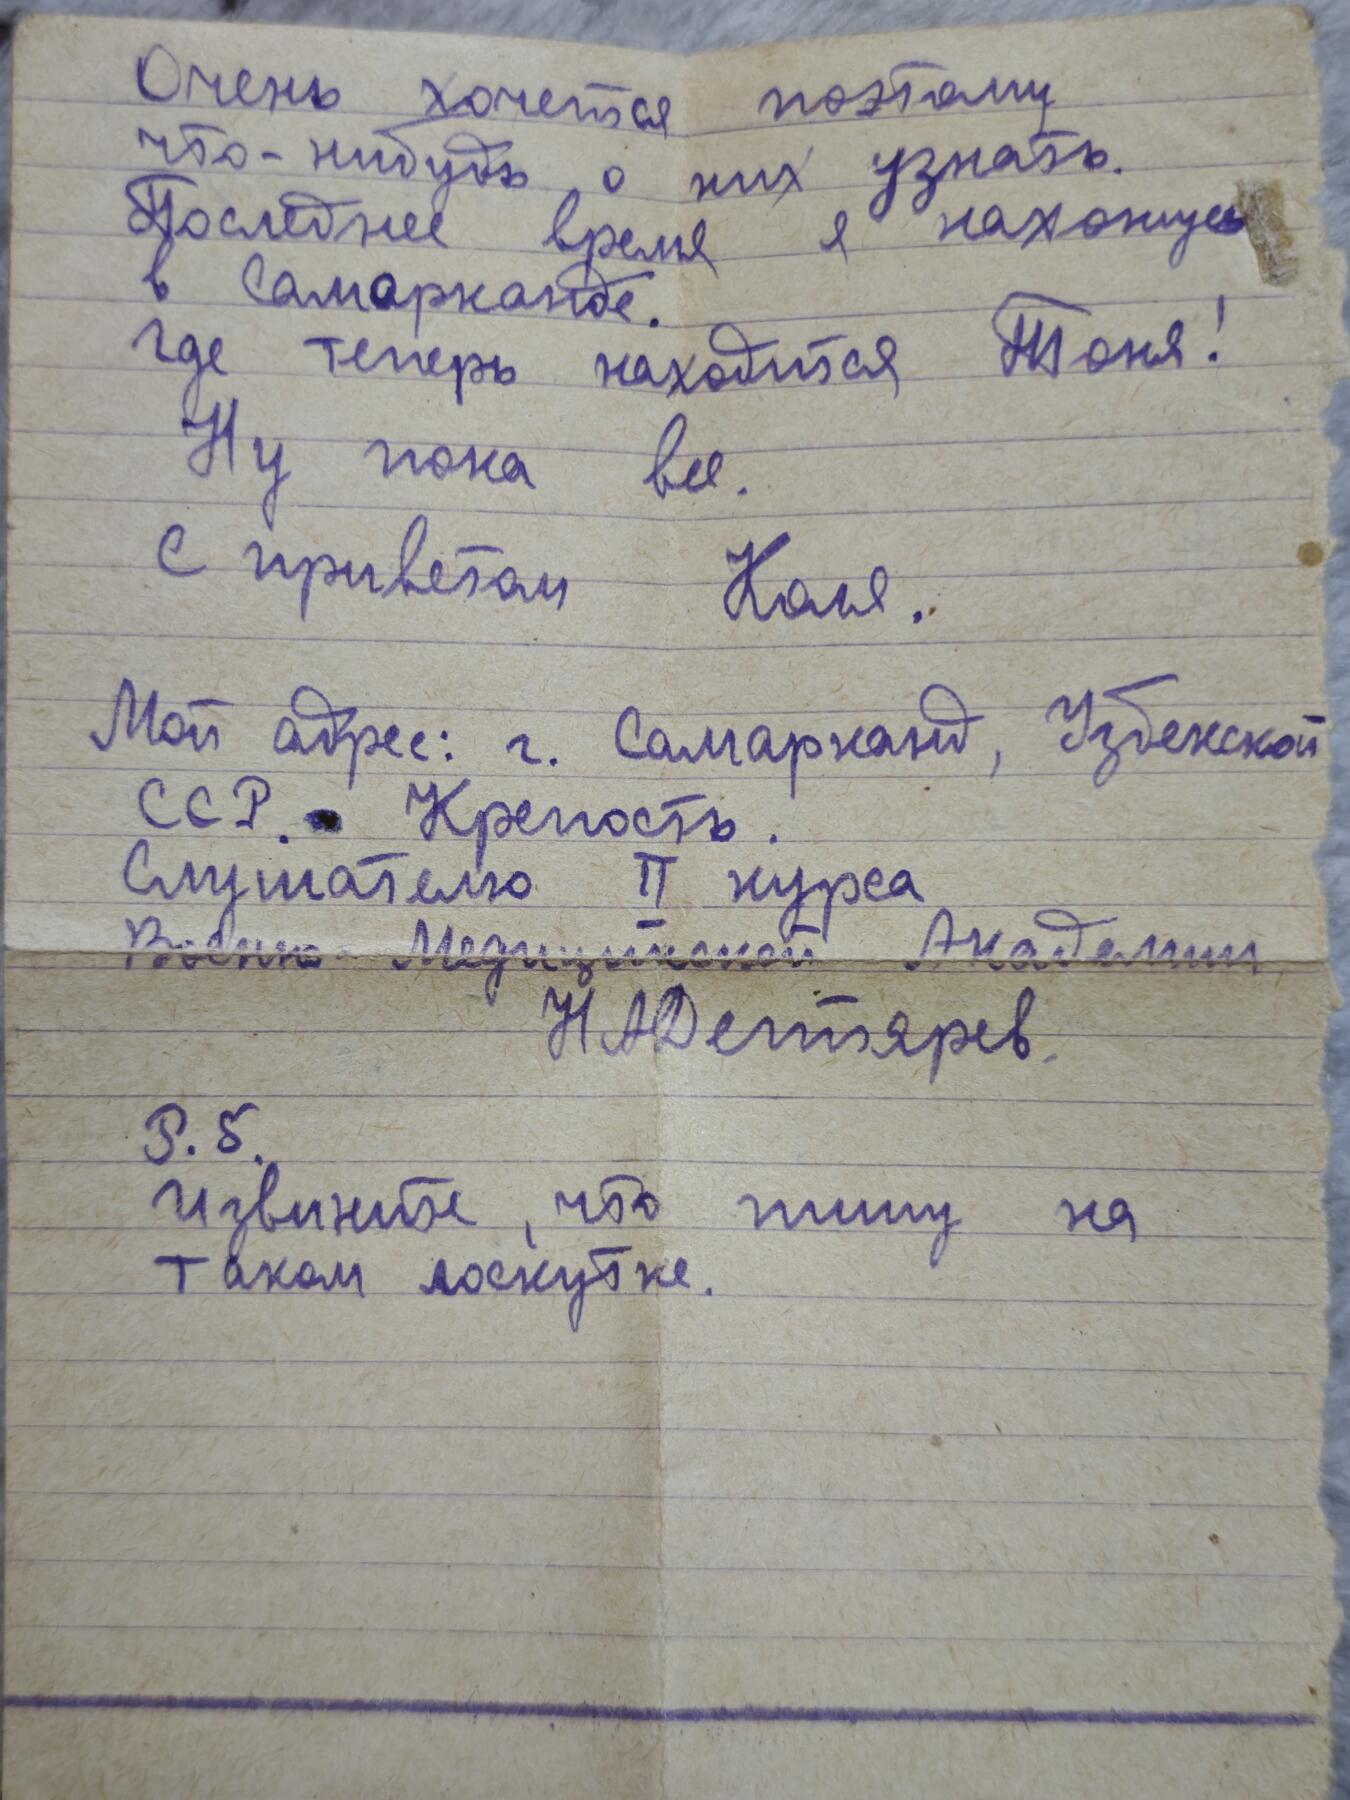 Очень хочется поэтому
что-нибудь о них узнать.
Последнее время я нахожусь
в Самарканде.
Где теперь находится Тоня!
Ну пока все.
С приветом Коля.
Мой адрес: г. Самарканд, Узбекской
ССР. Крепость.
Слушателю II курса
Военно-Медицинской Академии
НАДегтярев.
P.S.
Извините, что пишу на
таком лоскутке.